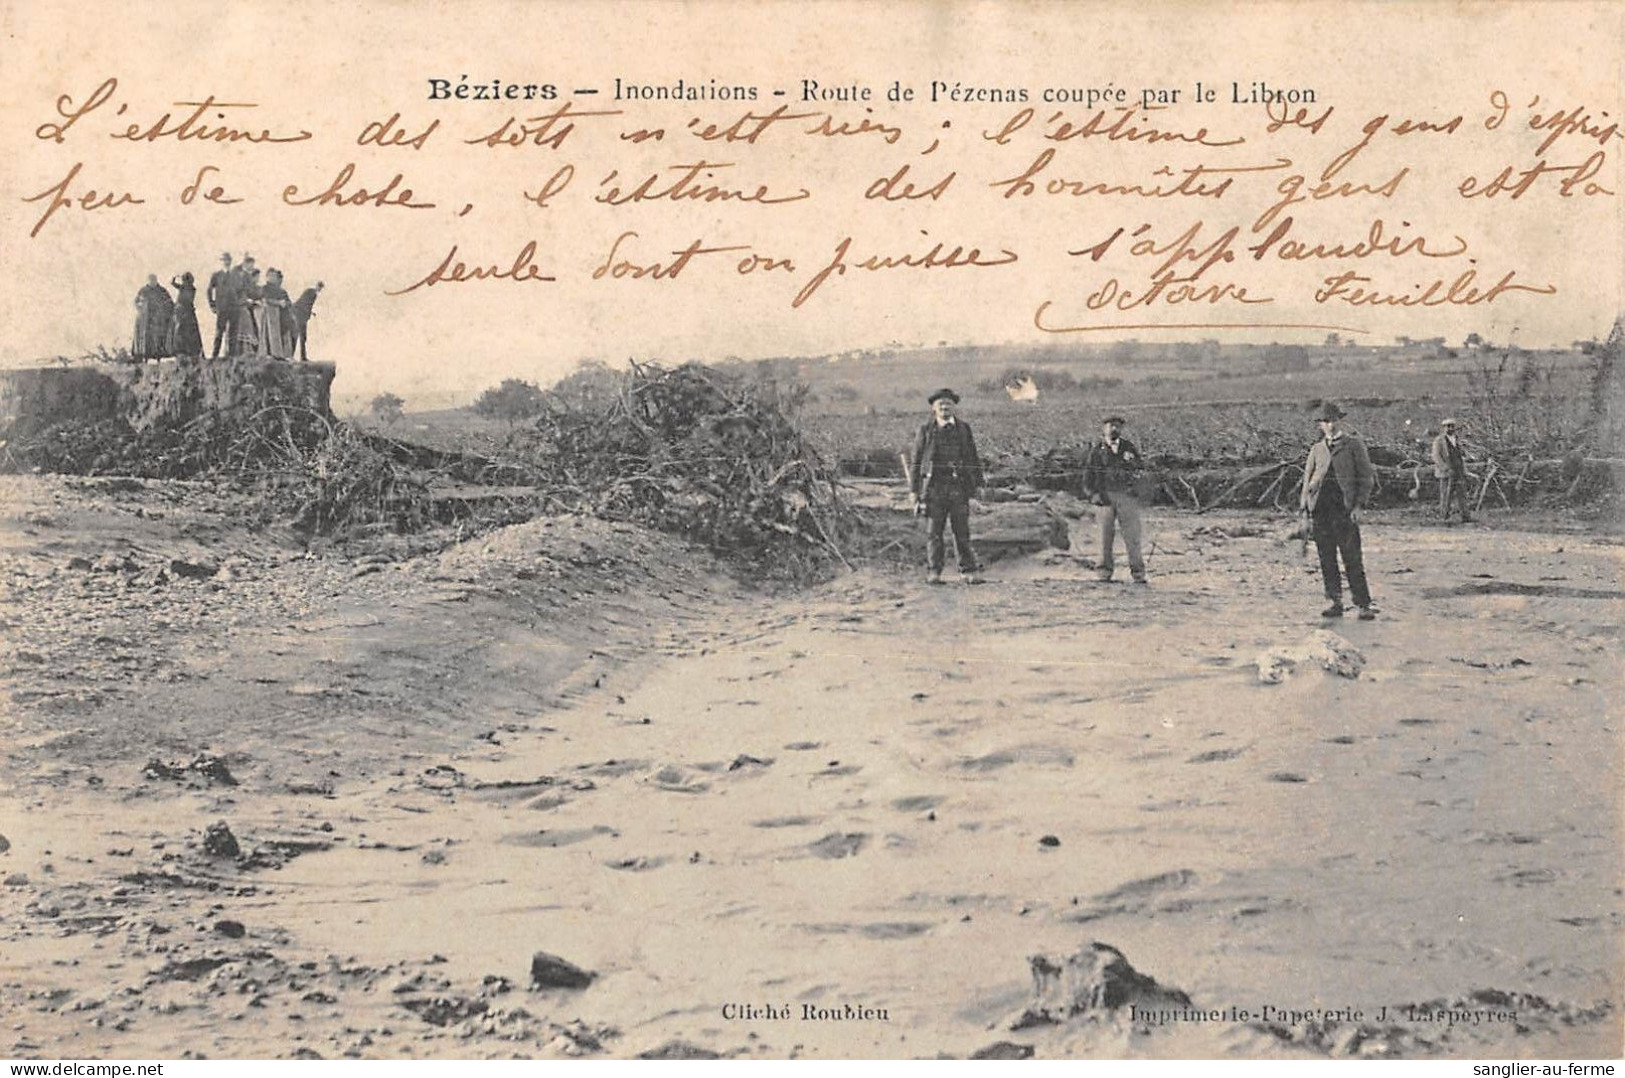 Béziers — Inondations - Route de Pézenas coupée par le Libron
L'estime des sots n'est rien ; l'estime des gens d'espris
peu de chose, l'estime des honnêtes gens est la
seule dont on puisse s'applaudir.
Octave Feuillet
Cliché Roubieu
Imprimerie-Papeterie J. Laspeyres
sanglier-au-ferme
delcampe.net